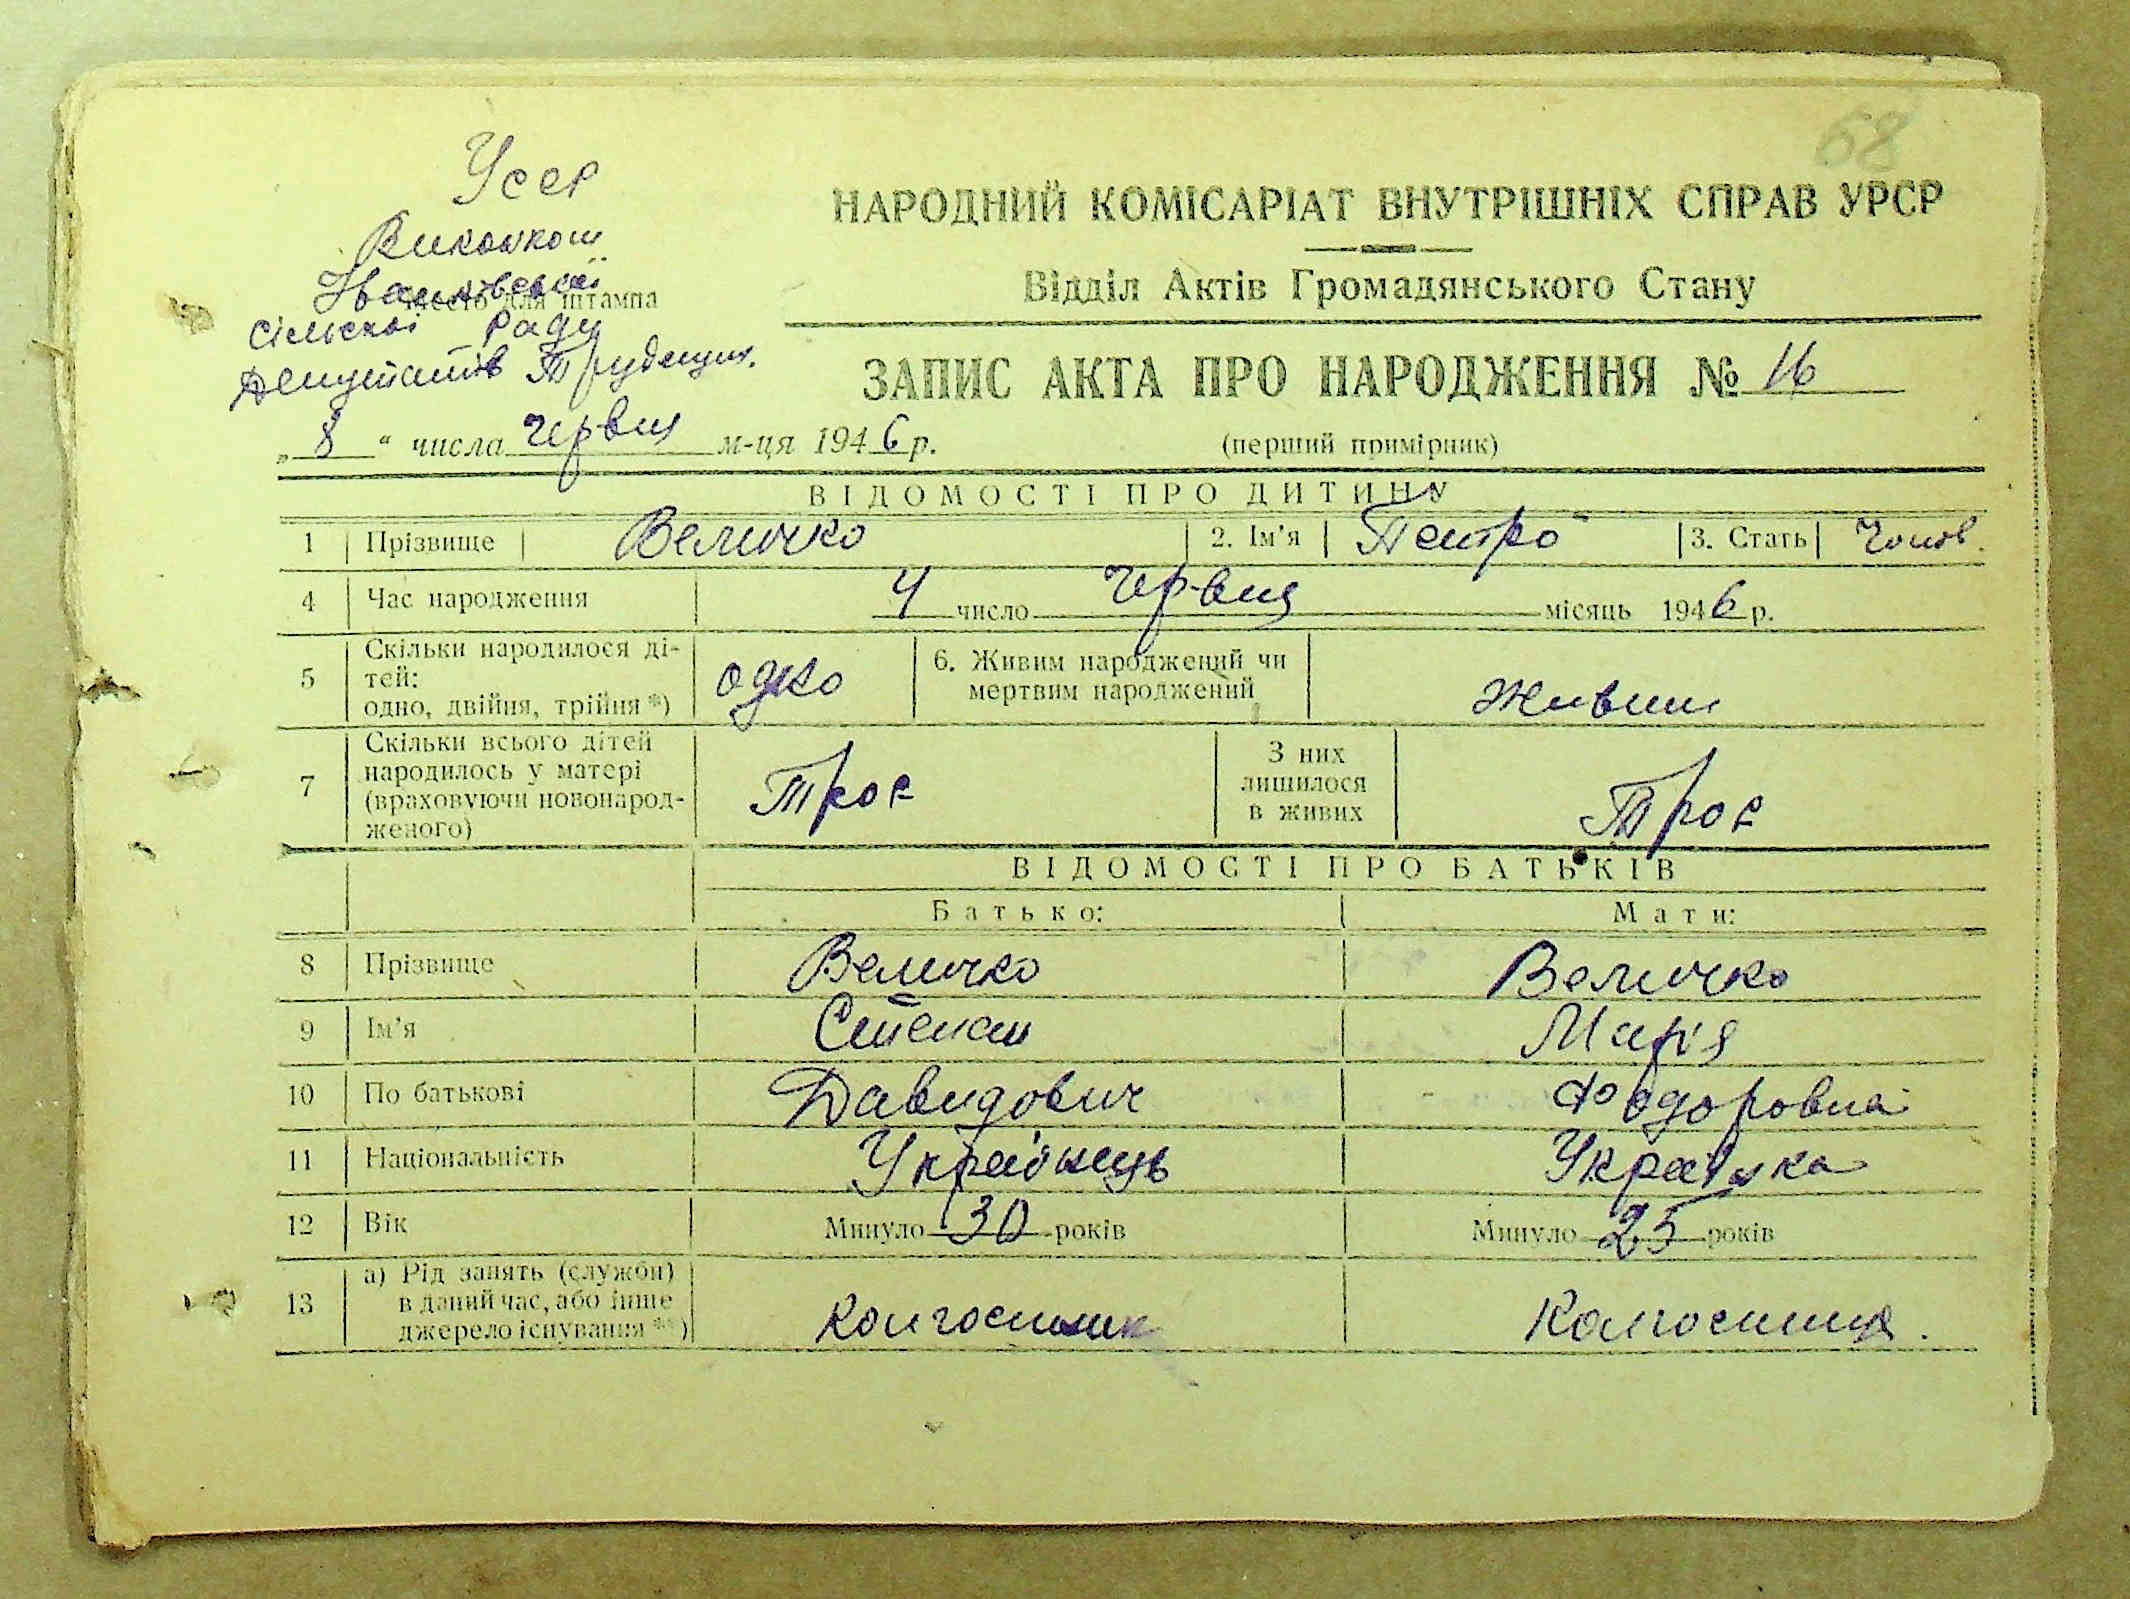 68
УССР
Виконком
НАРОДНИЙ КОМІСАРІАТ ВНУТРІШНІХ СПРАВ УРСР
Іванківської
Місто для штампа
Відділ Актів Громадянського Стану
сільської Ради
Депутатів Трудящих.
ЗАПИС АКТА ПРО НАРОДЖЕННЯ № 16
„ 8 “ числа червня м-ця 1946 р.
(перший примірник)
ВІДОМОСТІ ПРО ДИТИНУ
1 Прізвище Величко 2. Ім’я Петро 3. Стать Чолов.
4 Час народження 4 число червня місяць 1946 р.
5 Скільки народилося ді-
тей:
одно, двійня, трійня *) одно
6. Живим народжений чи
мертвим народжений Живим
7 Скільки всього дітей
народилось у матері
(враховуючи новонарод-
женого) Троє
З них
лишилося
в живих Троє
ВІДОМОСТІ ПРО БАТЬКІВ
Батько: Мати:
8 Прізвище Величко Величко
9 Ім’я Степан Марія
10 По батькові Давидович Федоровна
11 Національність Українець Українка
12 Вік Минуло 30 років Минуло 25 років
13 а) Рід занять (служби)
в даний час, або інше
джерело існування **) колгоспник Колгоспниця.